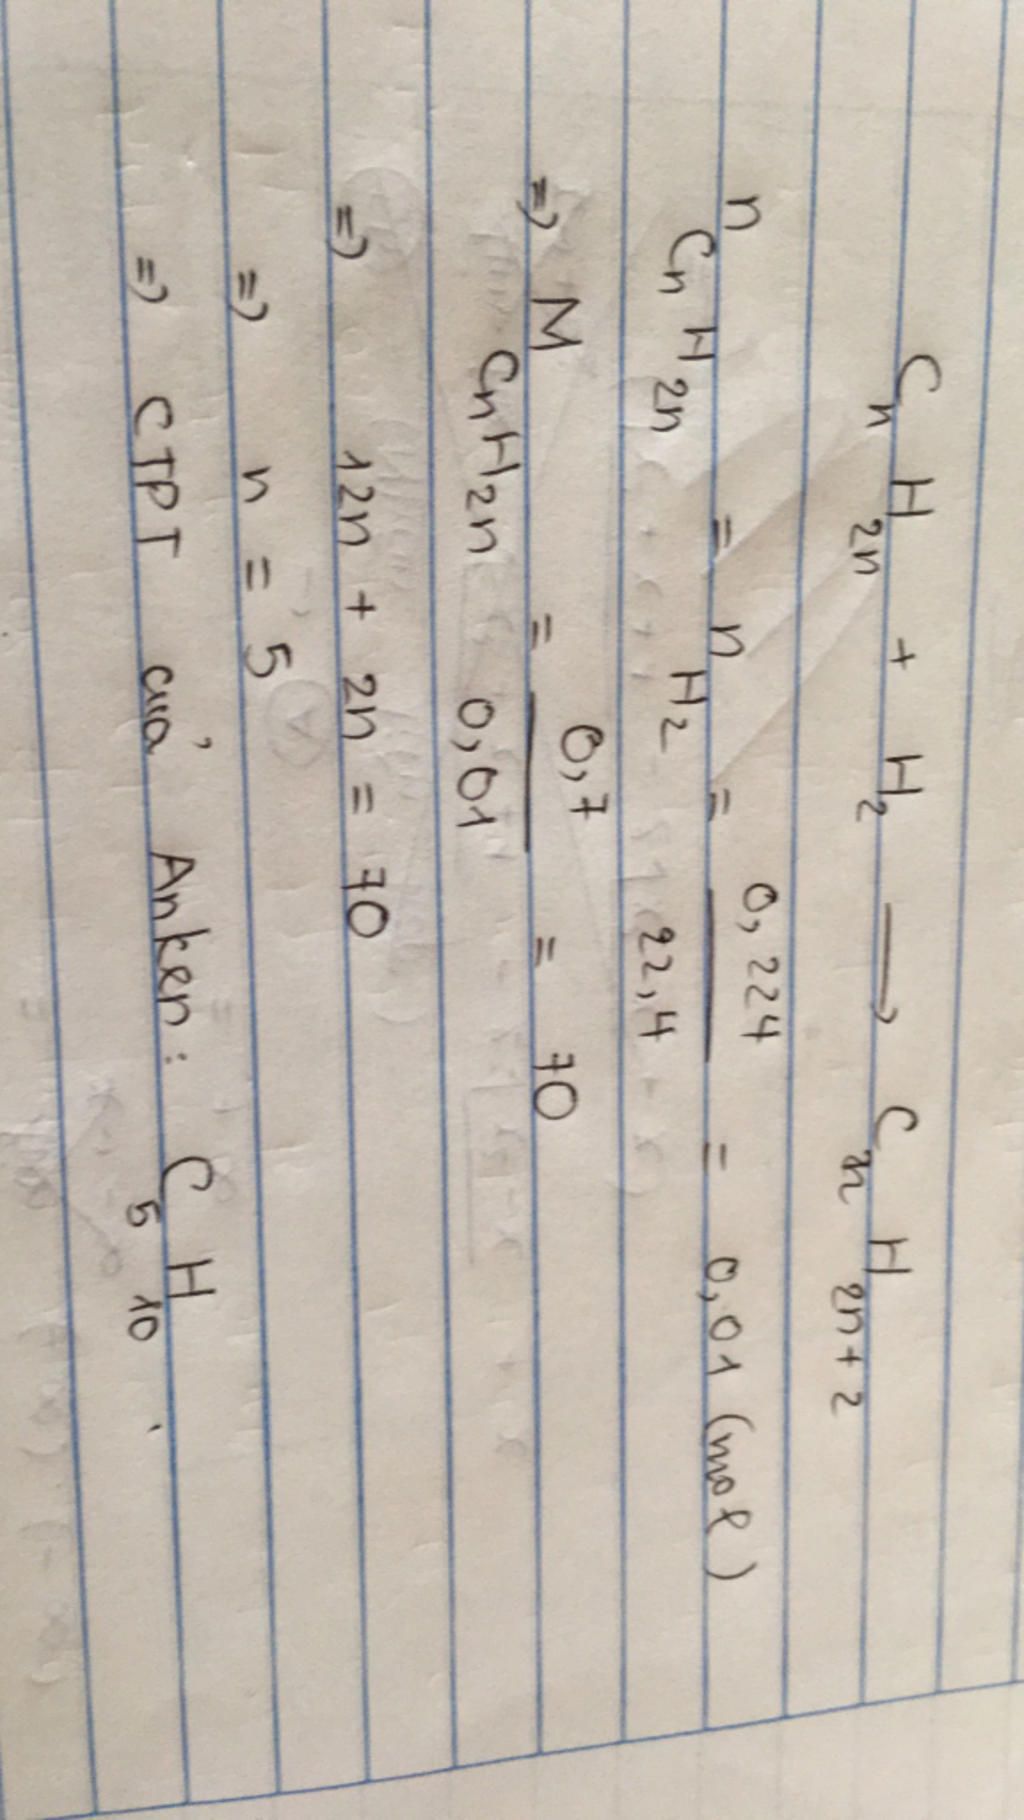 CnH2n + H2 → CnH2n+2
nCnH2n = nH2 = 0,224/22,4 = 0,01 (mol)
=> MCnH2n = 0,7/0,01 = 70
=> 12n + 2n = 70
=> n = 5
=> CTPT của Anken: C5H10.